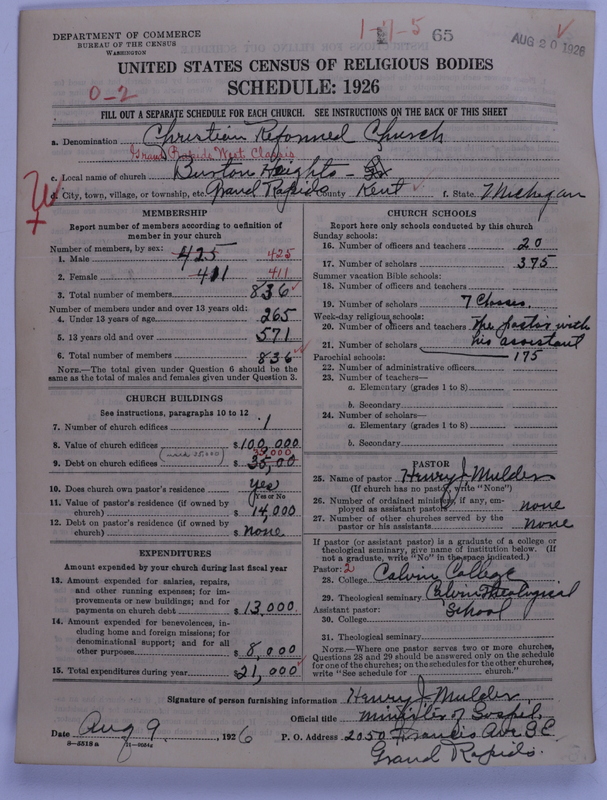 DEPARTMENT OF COMMERCE
BUREAU OF THE CENSUS
WASHINGTON
1-11-5
65
AUG 20 1926
UNITED STATES CENSUS OF RELIGIOUS BODIES
SCHEDULE: 1926
0-2
FILL OUT A SEPARATE SCHEDULE FOR EACH CHURCH. SEE INSTRUCTIONS ON THE BACK OF THIS SHEET
a. Denomination Christian Reformed Church
Grand Rapids West Classis
c. Local name of church Burton Heights
d. City, town, village, or township, etc. Grand Rapids County Kent f. State Michegan
MEMBERSHIP
Report number of members according to definition of member in your church
Number of members, by sex:
1. Male 425 425
2. Female 411 411
3. Total number of members 836
Number of members under and over 13 years old:
4. Under 13 years of age 265
5. 13 years old and over 571
6. Total number of members 836
NOTE.—The total given under Question 6 should be the same as the total of males and females given under Question 3.
CHURCH BUILDINGS
See instructions, paragraphs 10 to 12
7. Number of church edifices 1
8. Value of church edifices $100,000
35,000
9. Debt on church edifices $35,00
10. Does church own pastor's residence yes
(Yes or No)
11. Value of pastor's residence (if owned by church) $14,000
12. Debt on pastor's residence (if owned by church) $none
EXPENDITURES
Amount expended by your church during last fiscal year
13. Amount expended for salaries, repairs, and other running expenses; for improvements or new buildings; and for payments on church debt $13,000
14. Amount expended for benevolences, including home and foreign missions; for denominational support; and for all other purposes $8,000
15. Total expenditures during year $21,000
CHURCH SCHOOLS
Report here only schools conducted by this church
Sunday schools:
16. Number of officers and teachers 20
17. Number of scholars 375
Summer vacation Bible schools:
18. Number of officers and teachers
19. Number of scholars 7 Classes.
Week-day religious schools:
20. Number of officers and teachers The pastor with
his assistant
21. Number of scholars 175
Parochial schools:
22. Number of administrative officers
23. Number of teachers—
a. Elementary (grades 1 to 8)
b. Secondary
24. Number of scholars—
a. Elementary (grades 1 to 8)
b. Secondary
PASTOR
25. Name of pastor Henry J. Mulder
(If church has no pastor, write "None")
26. Number of ordained ministers, if any, employed as assistant pastors none
27. Number of other churches served by the pastor or his assistants none
If pastor (or assistant pastor) is a graduate of a college or theological seminary, give name of institution below. (If not a graduate, write "No" in the space indicated.)
Pastor: 2
28. College Calvin College
29. Theological seminary Calvin Theological
School
Assistant pastor:
30. College
31. Theological seminary
NOTE.—Where one pastor serves two or more churches, Questions 28 and 29 should be answered only on the schedule for one of the churches; on the schedules for the other churches, write "See schedule for church."
Signature of person furnishing information Henry J. Mulder
Official title Minister of Gospel.
Date Aug 9, 1926 P. O. Address 2050 Francis Ave S.E.
Grand Rapids.
8-5518a
11-9684